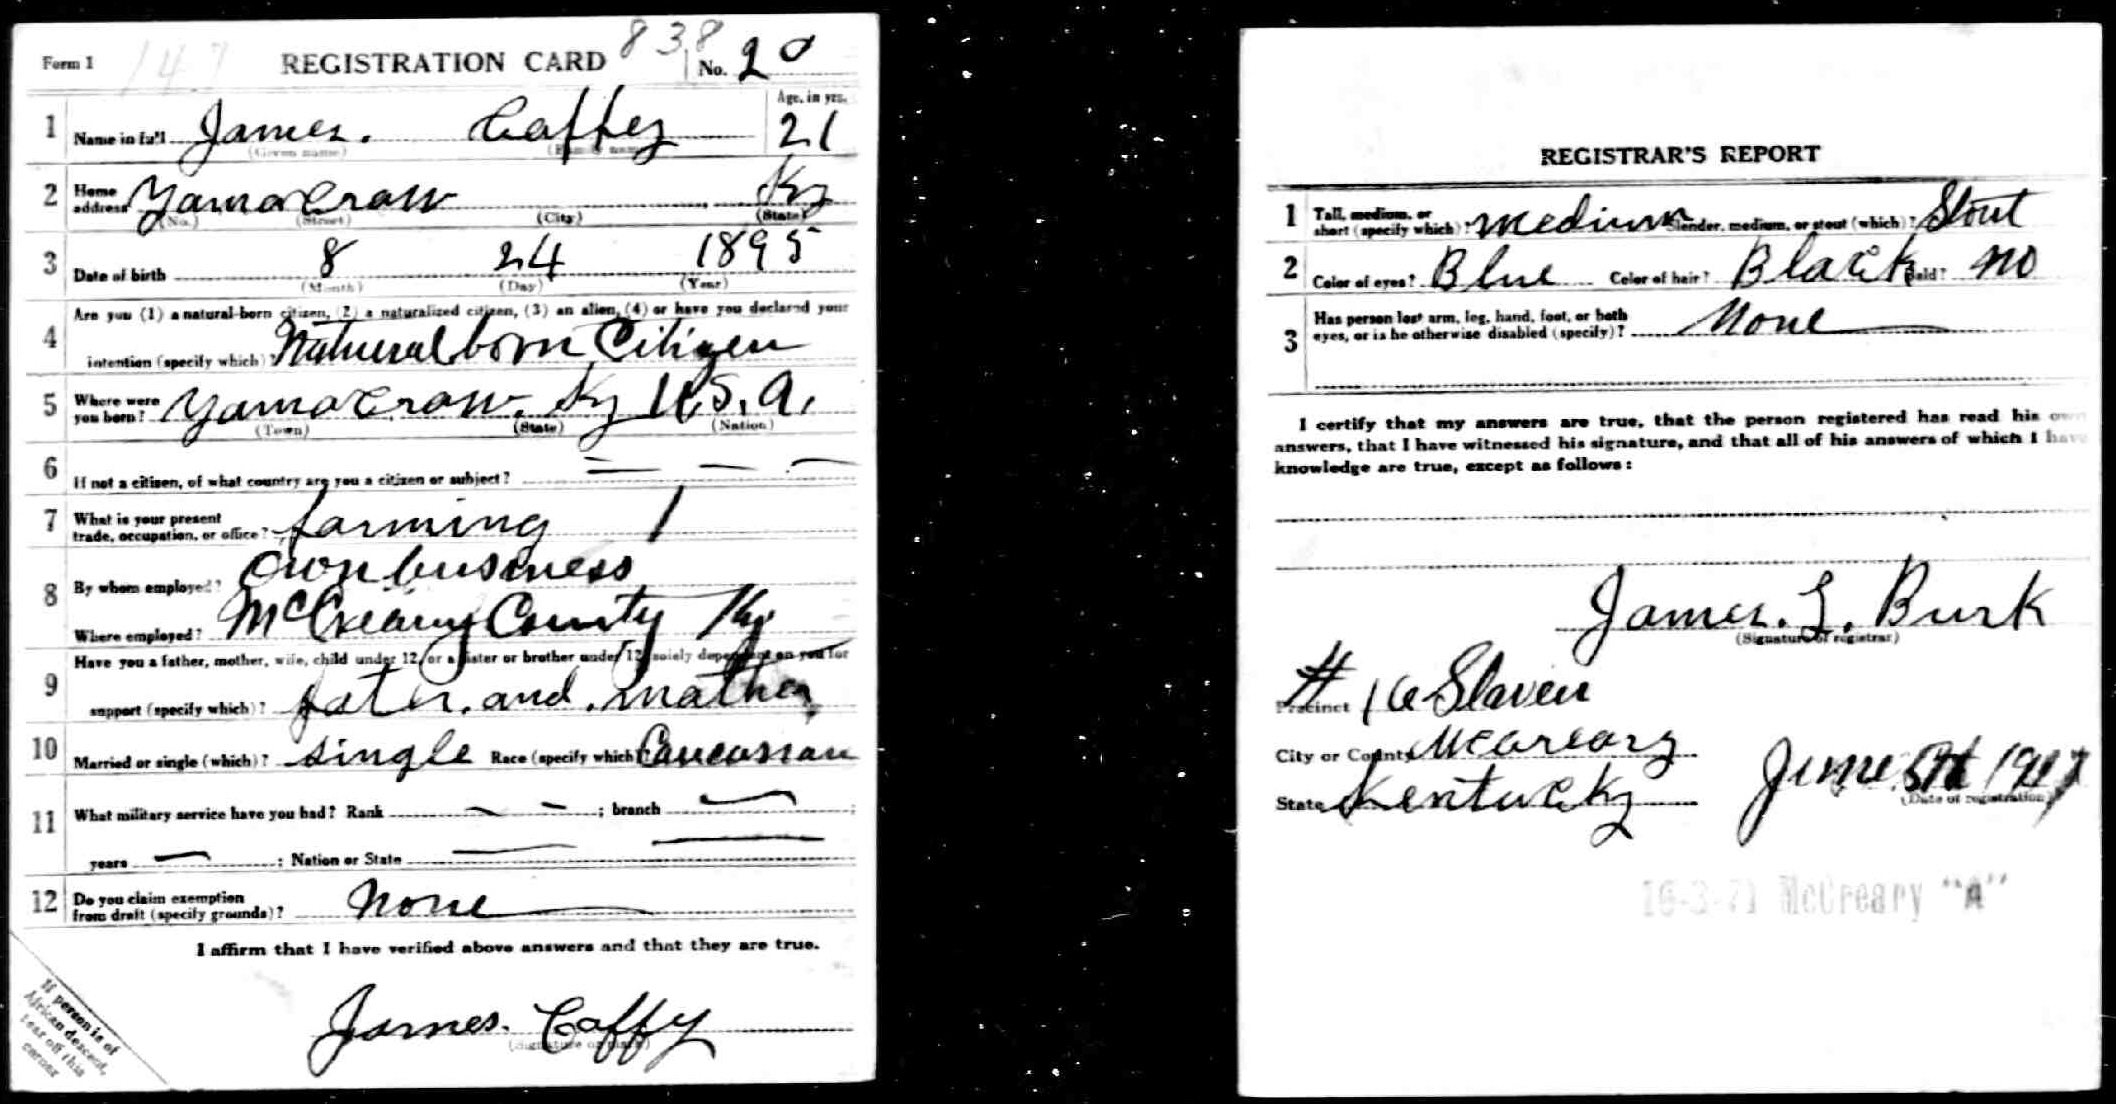 Form 1 147 REGISTRATION CARD 838 No. 20
1 Name in full James. Caffey Age, in yrs. 21
(Given name) (Family name)
2 Home address Yamacraw Ky
(No.) (Street) (City) (State)
3 Date of birth 8 24 1895
(Month) (Day) (Year)
4 Are you (1) a natural-born citizen, (2) a naturalized citizen, (3) an alien, (4) or have you declared your
intention (specify which)? Natural born Citizen
5 Where were you born? Yamacraw. Ky U.S.A.
(Town) (State) (Nation)
6 If not a citizen, of what country are you a citizen or subject?
7 What is your present trade, occupation, or office? farming 1
8 By whom employed? Own business
Where employed? McCreary County Ky.
9 Have you a father, mother, wife, child under 12, or a sister or brother under 12, solely dependent on you for
support (specify which)? fater. and. mather
10 Married or single (which)? single Race (specify which)? Caucasian
11 What military service have you had? Rank ; branch ;
years ; Nation or State
12 Do you claim exemption from draft (specify grounds)? None
I affirm that I have verified above answers and that they are true.
James. Caffy
(Signature or mark)
If person is of
African descent,
tear off this
corner
REGISTRAR'S REPORT
1 Tall, medium, or short (specify which)? medium Slender, medium, or stout (which)? Stout
2 Color of eyes? Blue Color of hair? Black Bald? no
3 Has person lost arm, leg, hand, foot, or both
eyes, or is he otherwise disabled (specify)? None
I certify that my answers are true, that the person registered has read his own
answers, that I have witnessed his signature, and that all of his answers of which I have
knowledge are true, except as follows:
James. L. Burk
(Signature of registrar)
Precinct # 16 Slaven
City or County McCreary
State Kentucky June 5th 1917
(Date of registration)
16-3-21 McCreary "A"